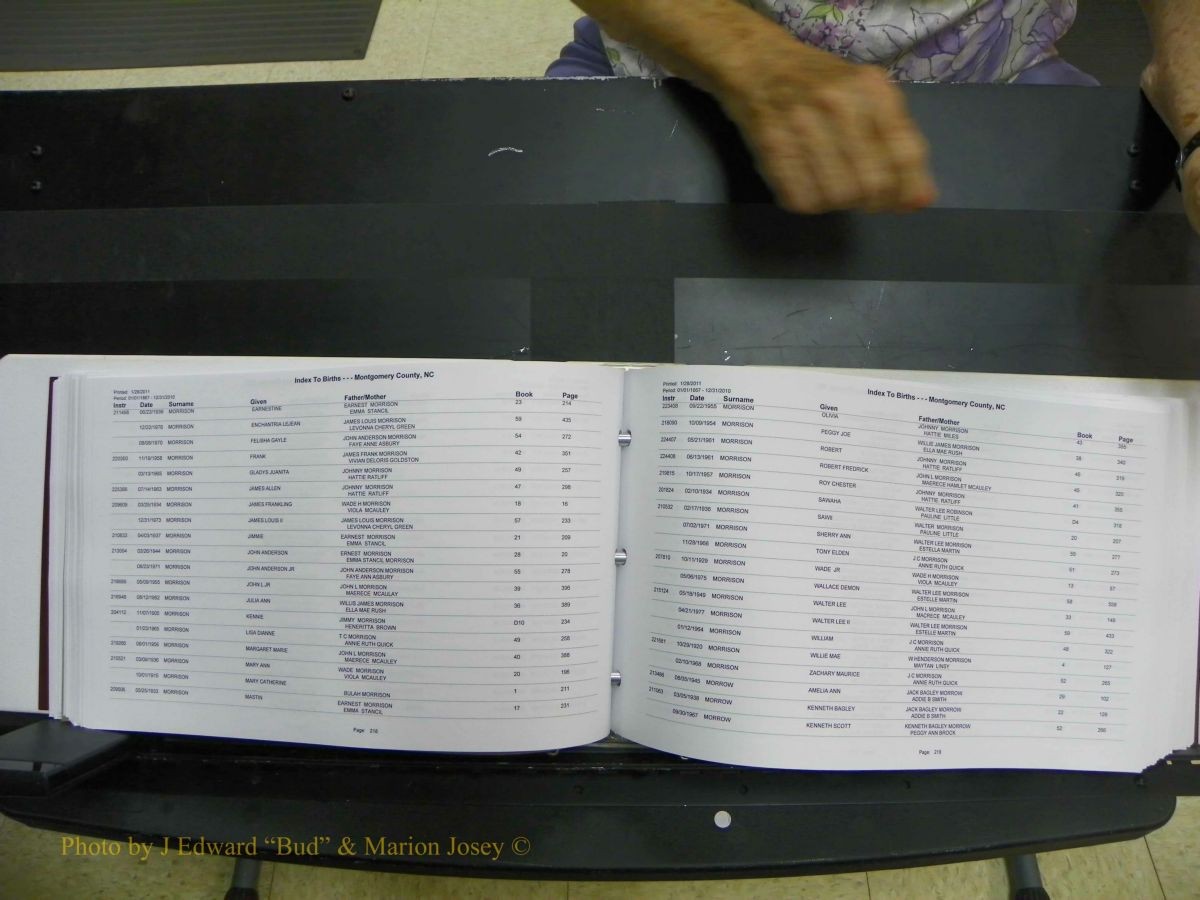 Index To Births - - - Montgomery County, NC
Printed: 1/28/2011
Period: 01/01/1867 - 12/31/2010
Instr Date Surname Given Father/Mother Book Page
MORRISON EARNESTINE EARNEST MORRISON 23 214
EMMA STANCIL
MORRISON ENCHANTRIA LEJEAN JAMES LOUIS MORRISON 59 435
LEVONNA CHERYL GREEN
MORRISON FELISHA GAYLE JOHN ANDERSON MORRISON 54 272
FAYE ANNE ASBURY
MORRISON FRANK JAMES FRANK MORRISON 42 351
VIVIAN DELORIS GOLDSTON
MORRISON GLADYS JUANITA JOHNNY MORRISON 49 257
HATTIE RATLIFF
MORRISON JAMES ALLEN JOHNNY MORRISON 47 298
HATTIE RATLIFF
MORRISON JAMES FRANKLING WADE H MORRISON 18 16
VIOLA MCAULEY
12/31/1973 MORRISON JAMES LOUIS II JAMES LOUIS MORRISON 57 233
LEVONNA CHERYL GREEN
04/03/1937 MORRISON JIMMIE EARNEST MORRISON 21 209
EMMA STANCIL
MORRISON JOHN ANDERSON ERNEST MORRISON 28 20
EMMA STANCIL MORRISON
MORRISON JOHN ANDERSON JR JOHN ANDERSON MORRISON 55 278
FAYE ANN ASBURY
MORRISON JOHN L JR JOHN L MORRISON 39 395
MAERECE MCAULAY
MORRISON JULIA ANN WILLIS JAMES MORRISON 36 389
ELLA MAE RUSH
MORRISON KENNIE JIMMY MORRISON D10 234
HENERITTA BROWN
MORRISON LISA DIANNE T C MORRISON 49 258
ANNIE RUTH QUICK
MORRISON MARGARET MARIE JOHN L MORRISON 40 388
MAERECE MCAULEY
MORRISON MARY ANN WADE MORRISON 20 196
VIOLA MCAULEY
10/01/1915 MORRISON MARY CATHERINE BULAH MORRISON 1 211
MORRISON MASTIN EARNEST MORRISON 17 231
EMMA STANCIL
Page 218
Printed: 1/28/2011
Period: 01/01/1867 - 12/31/2010
Index To Births - - - Montgomery County, NC
Instr Date Surname Given Father/Mother Book Page
223408 09/22/1955 MORRISON OLIVIA JOHNNY MORRISON 43
HATTIE MILES
218090 10/09/1954 MORRISON PEGGY JOE WILLIE JAMES MORRISON 38 340
ELLA MAE RUSH
224407 05/21/1961 MORRISON ROBERT JOHNNY MORRISON 319
HATTIE RATLIFF
224408 06/13/1961 MORRISON ROBERT FREDRICK JOHN L MORRISON 45 320
MAERECE HAMLET MCAULEY
219815 10/17/1957 MORRISON ROY CHESTER JOHNNY MORRISON 41 355
HATTIE RATLIFF
201824 02/10/1934 MORRISON SAWAHA WALTER LEE ROBINSON D4 318
PAULINE LITTLE
210532 02/17/1936 MORRISON SAWII WALTER MORRISON 20 207
PAULINE LITTLE
07/02/1971 MORRISON SHERRY ANN WALTER LEE MORRISON 277
ESTELLA MARTIN
11/28/1966 MORRISON TONY ELDEN J C MORRISON 51 273
ANNIE RUTH QUICK
207810 10/11/1929 MORRISON WADE JR WADE H MORRISON 13 57
VIOLA MCAULEY
05/06/1975 MORRISON WALLACE DEMON WALTER LEE MORRISON 58
ESTELLE MARTIN
215124 05/18/1949 MORRISON WALTER LEE JOHN L MORRISON 33
MACRECE MCAULEY
04/21/1977 MORRISON WALTER LEE II WALTER LEE MORRISON 59 433
ESTELLE MARTIN
01/12/1964 MORRISON WILLIAM J C MORRISON 48 322
ANNIE RUTH QUICK
10/29/1920 MORRISON WILLIE MAE W HENDERSON MORRISON 4 127
MAYTAN LINSY
02/10/1968 MORRISON ZACHARY MAURICE J C MORRISON 52 265
ANNIE RUTH QUICK
MORROW AMELIA ANN JACK BAGLEY MORROW 29 102
ADDIE B SMITH
03/05/1938 MORROW KENNETH BAGLEY JACK BAGLEY MORROW 22
ADDIE B SMITH
09/30/1967 MORROW KENNETH SCOTT KENNETH BAGLEY MORROW 52
PEGGY ANN BROCK
Page 219
Photo by J Edward “Bud” & Marion Josey ©